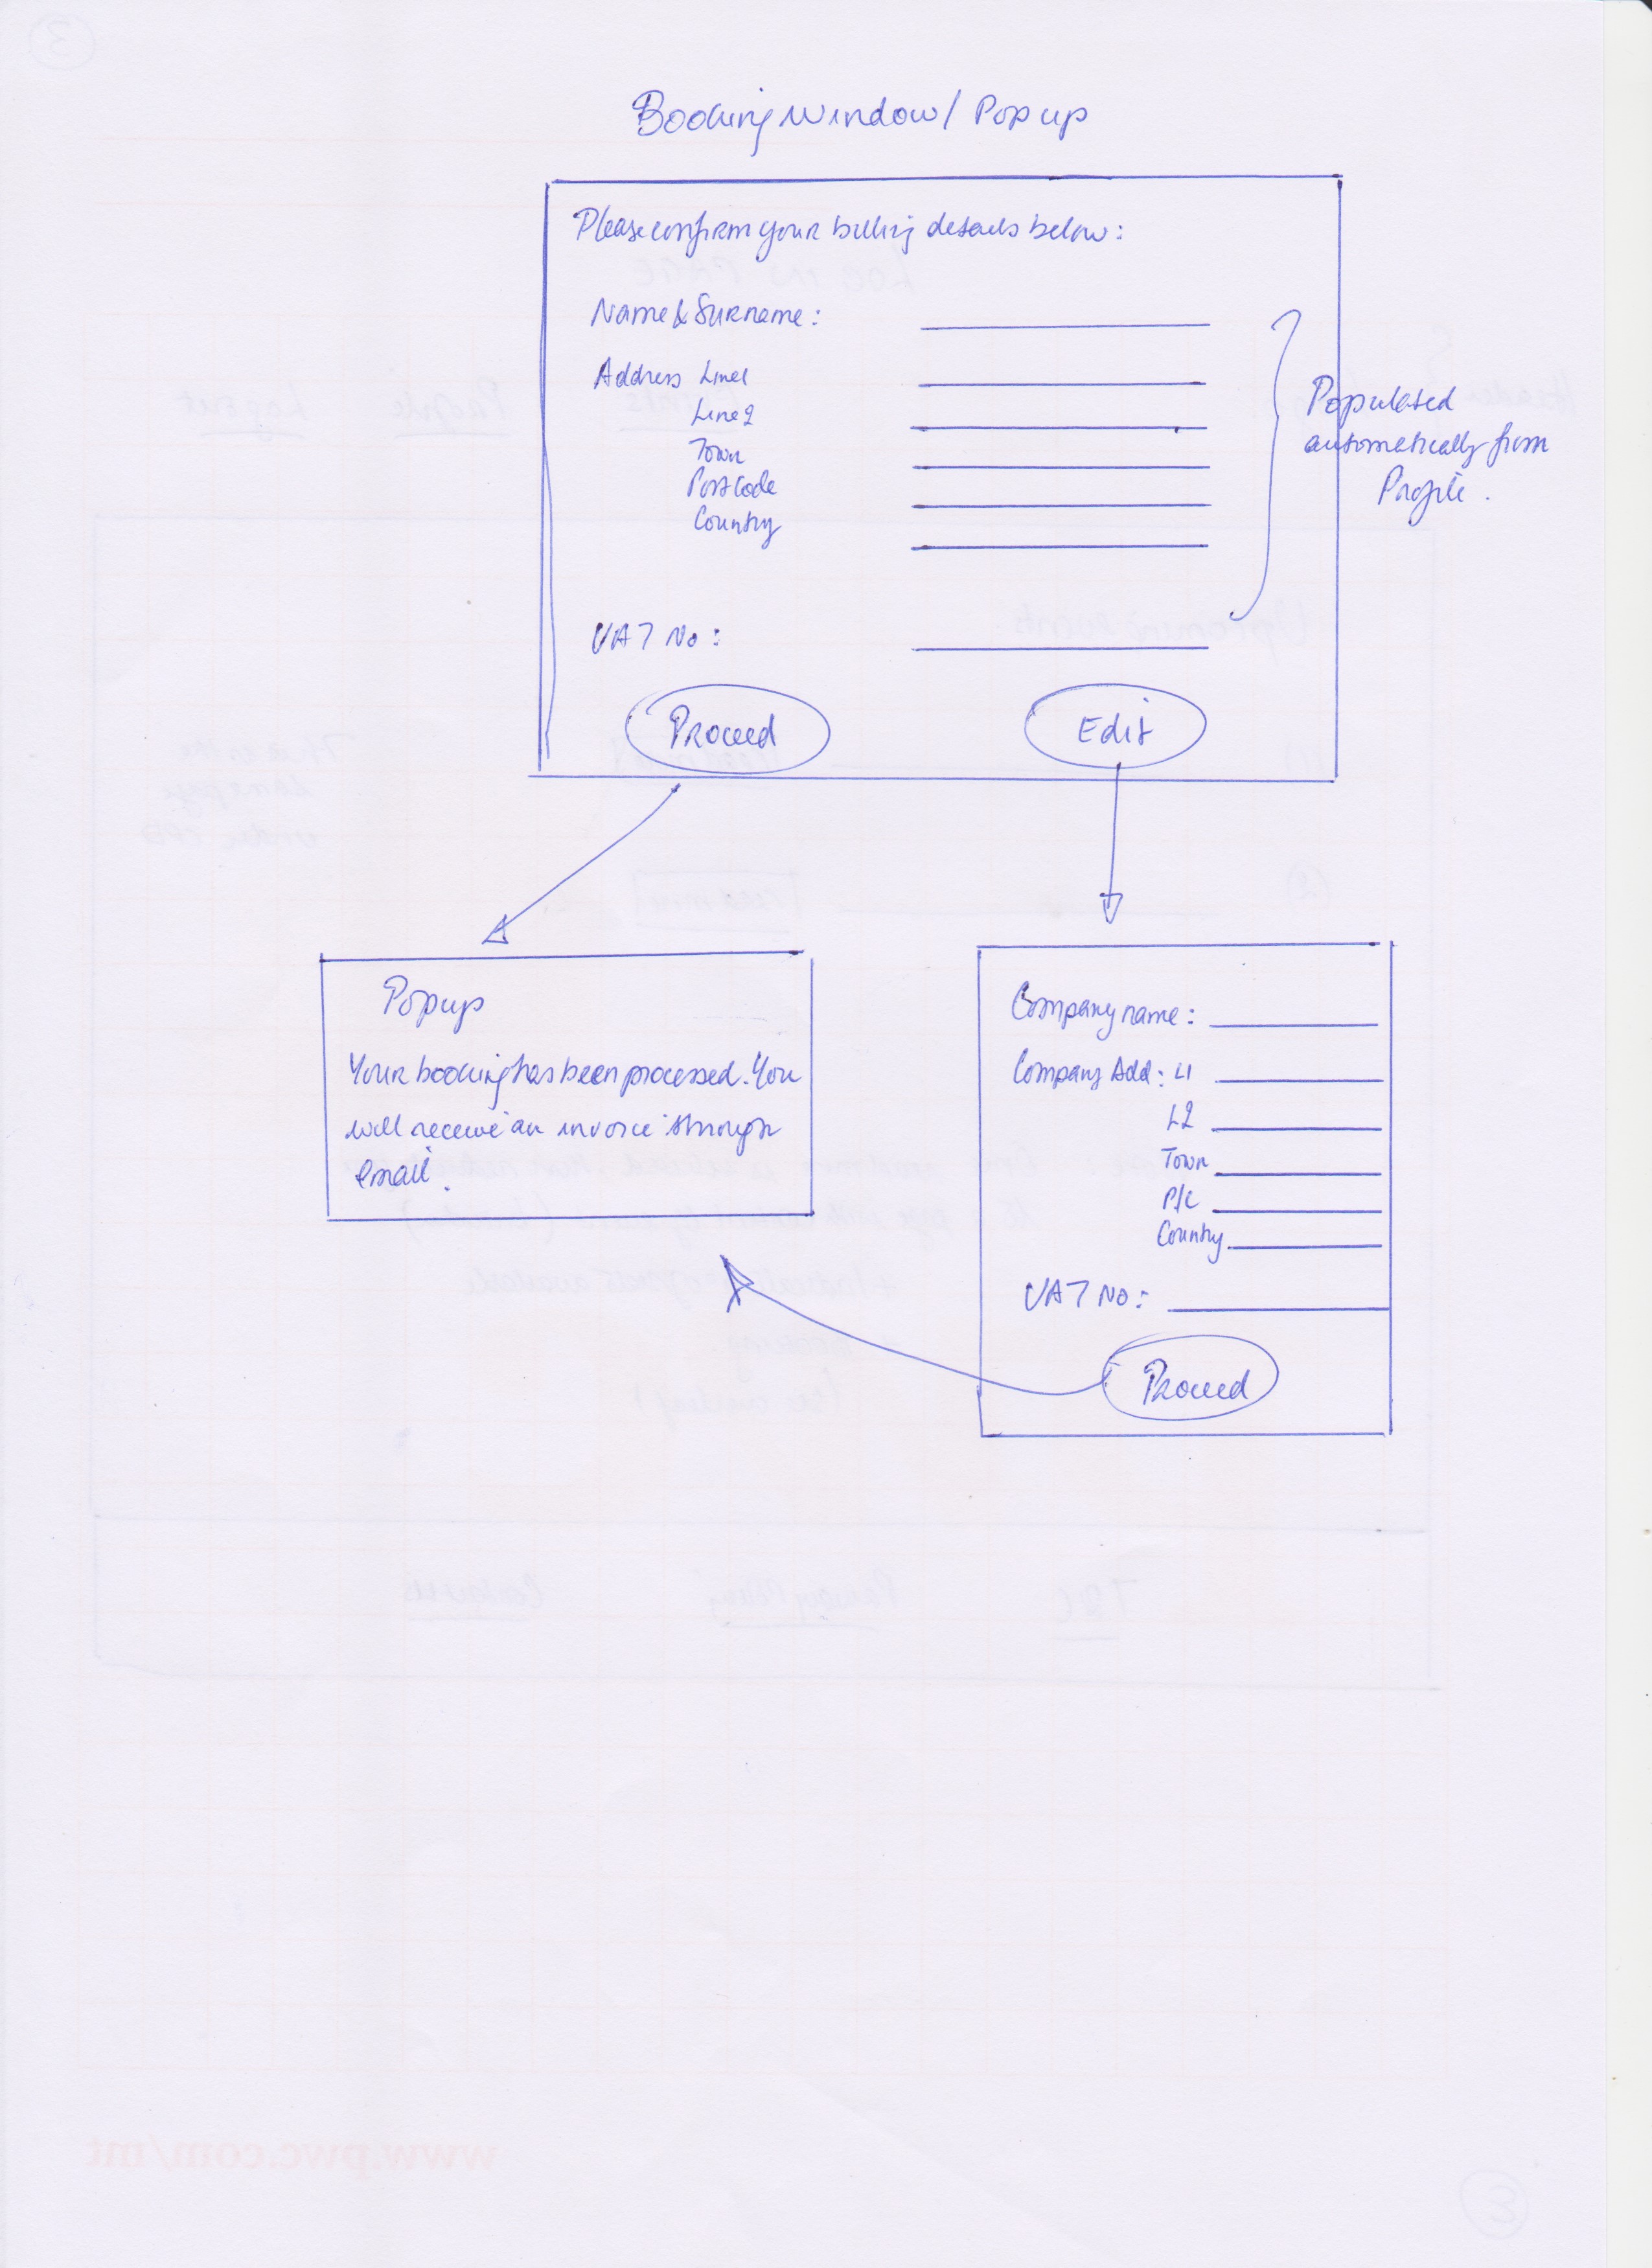 Booking window / Pop up
Please confirm your billing details below:
Name & Surname:
Address Line1
Line2
Town
Post Code
Country
Populated
automatically from
Profile.
VAT No:
Proceed
Edit
Popup
Your booking has been processed. You
will receive an invoice through
email.
Company name:
Company Add: L1
L2
Town
P/C
Country
VAT No:
Proceed
www.pwc.com/mt